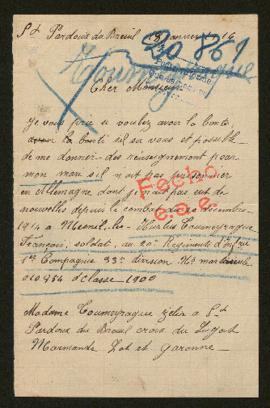 St Pardoux du Breuil 18 Janvier 1916
20 869
Coumeyrague
Cher Monsieur
Je vous prie si voulez avoir la bonté
avoir la bonté sil va vous est possible
de me donner des renseignement pour
mon mari sil n'est pas prisonier
en Allemagne dont je n'ai pas eut de
nouvelles depuis le combat du decembre
1914 a Mesnil les Hurlus Coumeyrague
François, soldat, au 20e Regimente d'infrie
Compagnie 33e division No matricule
010454 de classe 1900
Fecho
e.o.e.
Madame Coumeyrague Zelia a St
Pardoux du Breuil croix du
Marmande Lot et Garonne